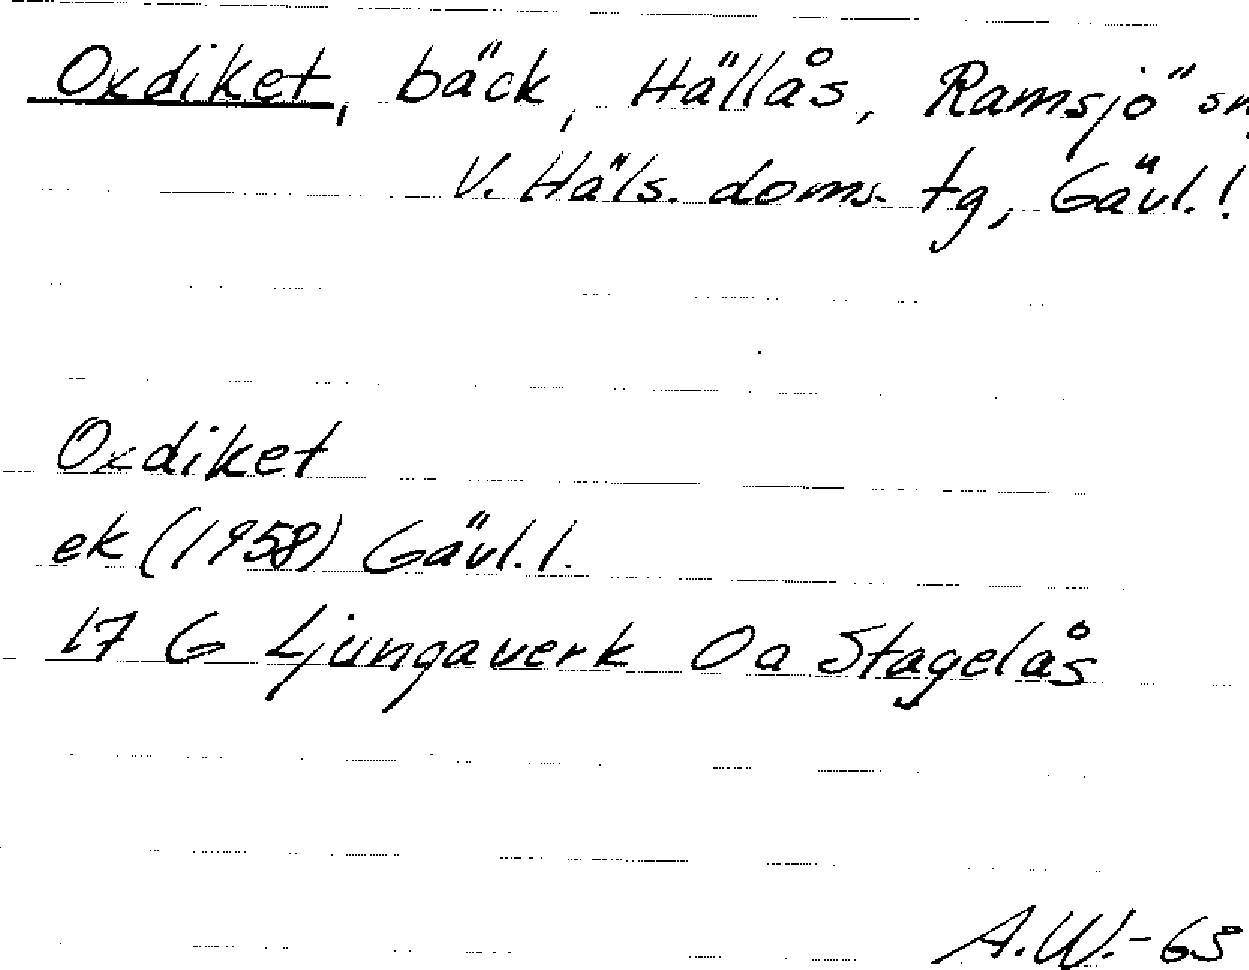 Oxdiket, bäck, Hällås, Ramsjö sn,
V. Häls. doms. tg, Gävl. l
Oxdiket
ek (1958) Gävl. l.
17 G Ljungaverk Oa Stagelås
A.W.-63